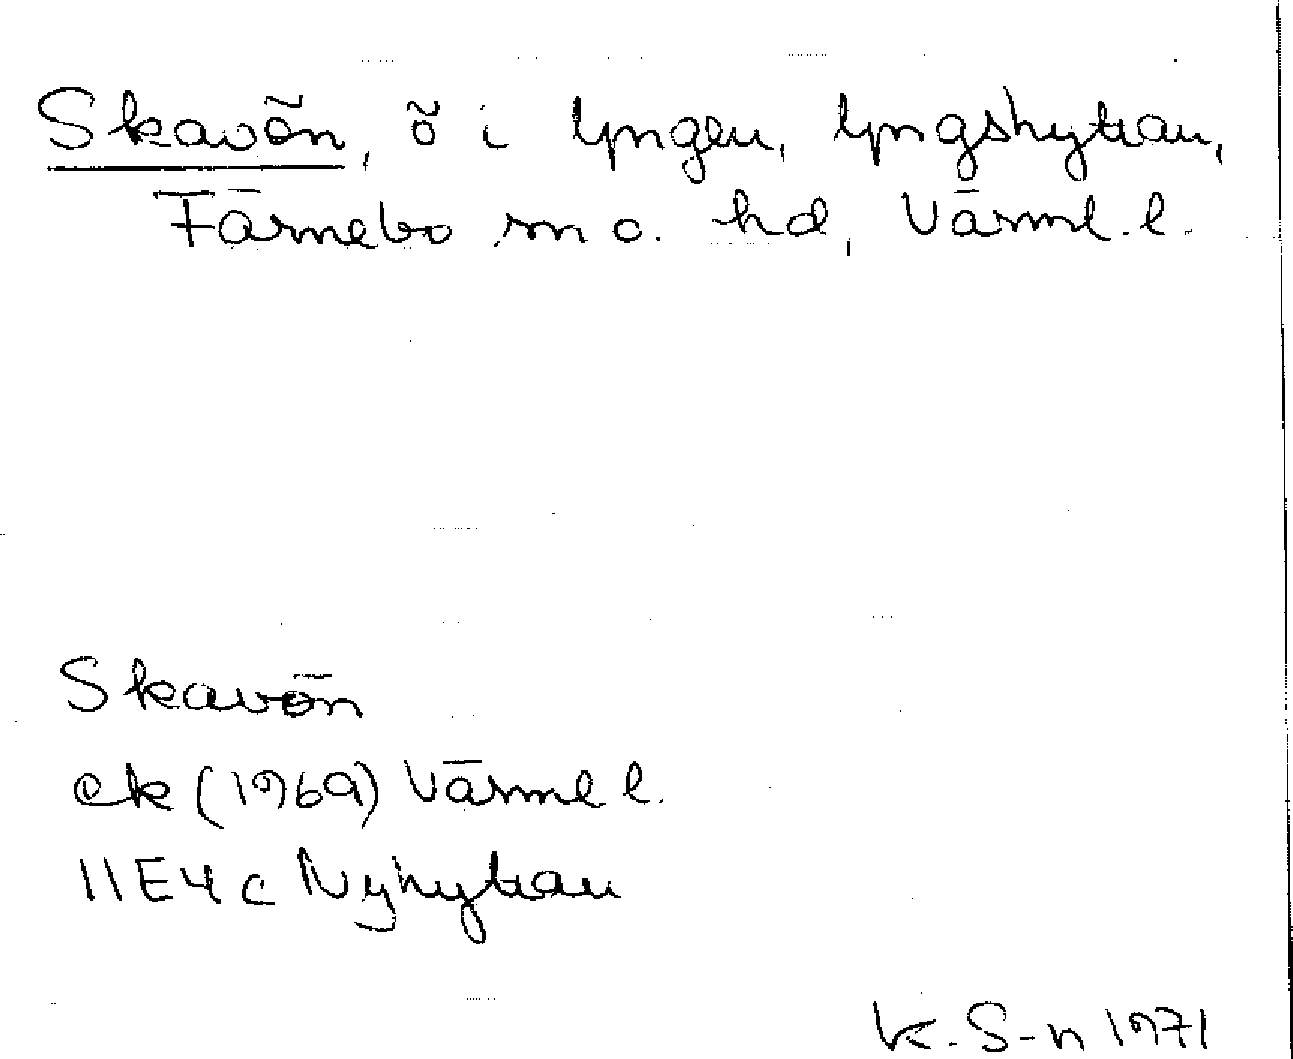 Skavön, ö i Lyngen, Lyngshyttan,
Färnebo sn o. hd, Värml. l.
Skavön
ek (1969) Värml l.
11E4c Nyhyttan
K. S-n 1971